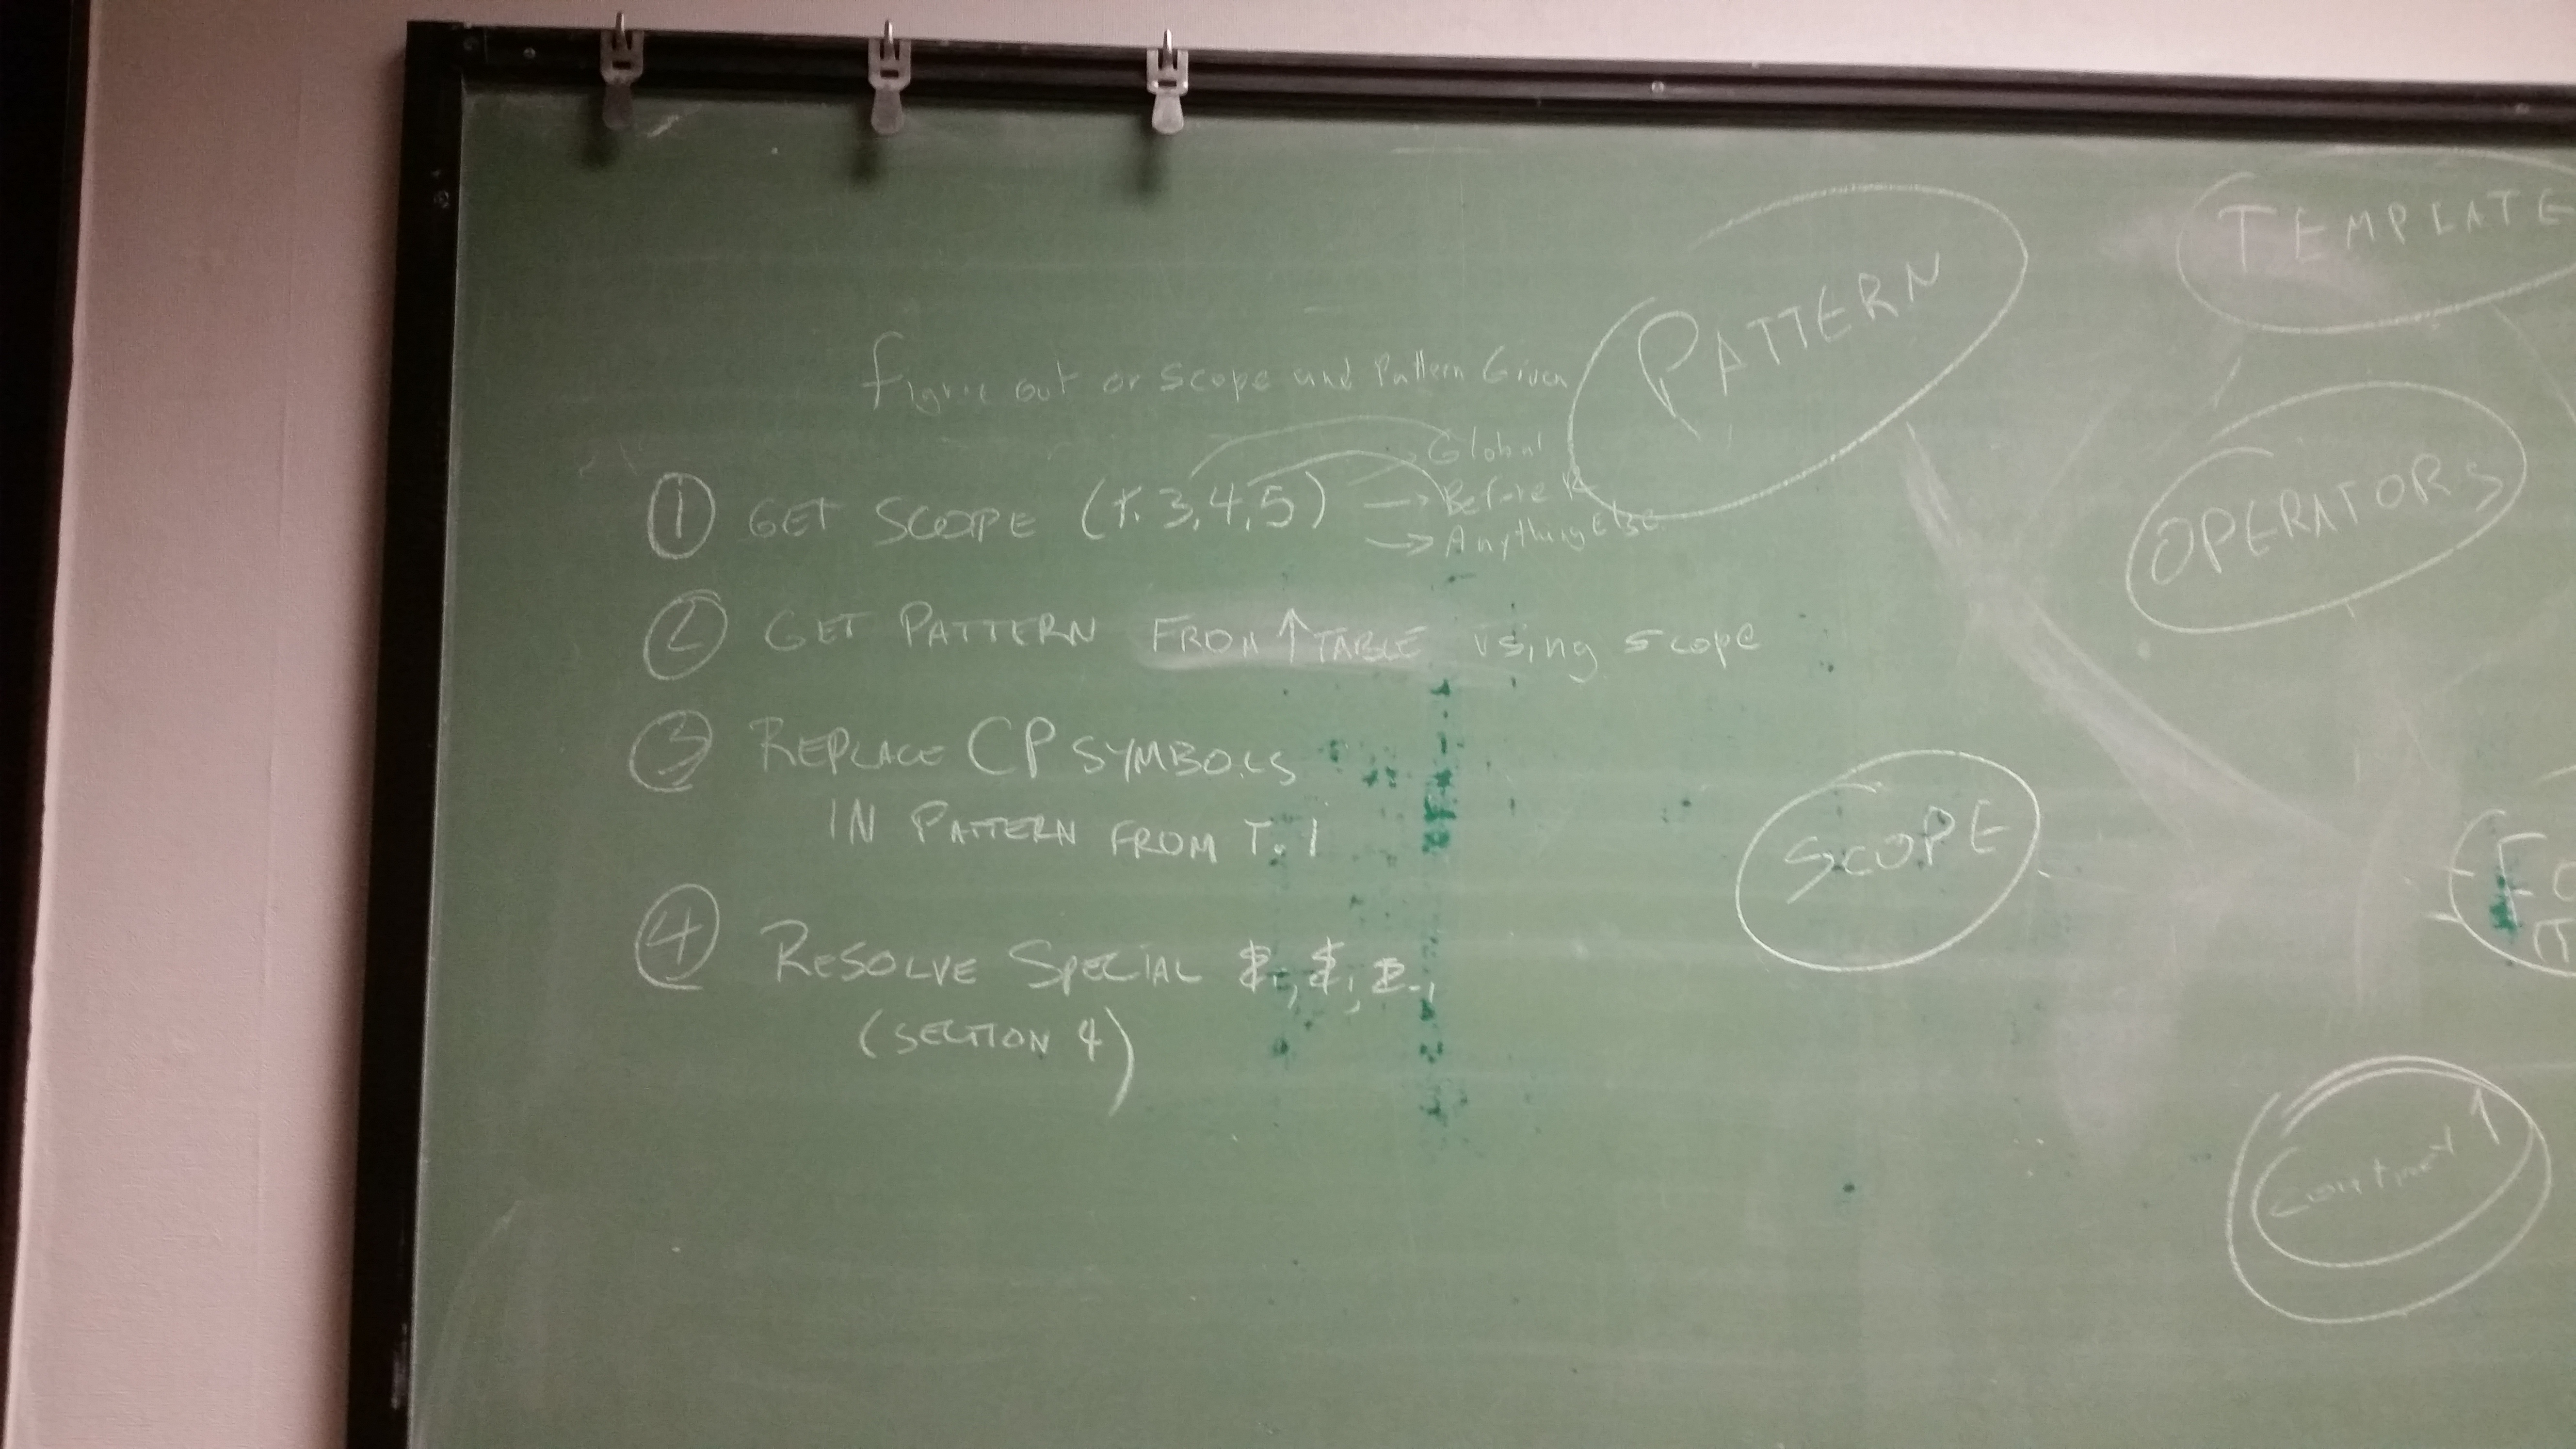 Figure out or scope and Pattern Given
① GET SCOPE (T. 3,4,5)
Global
→ Before R
→ Anything Else
② GET PATTERN FROM ↑ TABLE using scope
③ REPLACE CP SYMBOLS
IN PATTERN FROM T. 1
④ RESOLVE SPECIAL
(SECTION 4)
PATTERN
TEMPLATE
OPERATORS
SCOPE